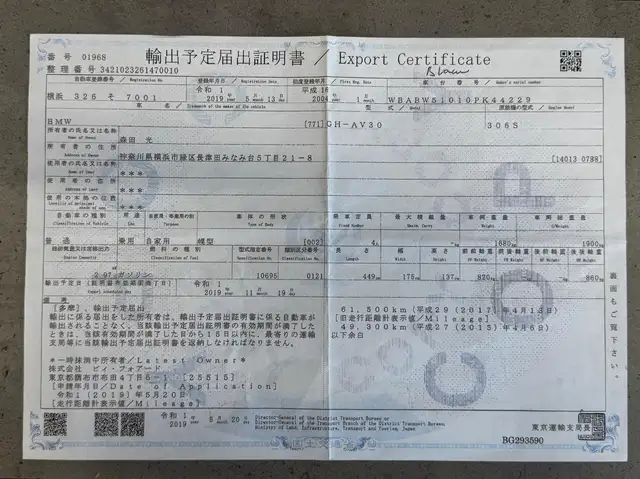 番号 01968
輸出予定届出証明書 / Export Certificate
整理番号 3421023261470010
自動車登録番号 / Registration No.
登録年月日 / Registration Date
初度登録年月 / First Reg. Date
車台番号 / Maker's serial number
横浜 326 そ 7001
令和 1
2019年 5月 13日
平成 16
2004年 1月
WBABW51010PK44229
車名 / Trademark of the maker of the vehicle
型式 / Model
原動機の型式 / Engine Model
BMW
[771] GH-AV30
306S
所有者の氏名又は名称
Name of Owner
森田 光
所有者の住所
Address of Owner
神奈川県横浜市緑区長津田みなみ台5丁目21-8
[14013 0788]
使用者の氏名又は名称
***
使用者の住所
Address of User
***
使用の本拠の位置
***
自動車の種別
Classification of Vehicle
用途
Use
自家用・事業用の別
車体の形状
Type of Body
乗車定員
Fixed Number
最大積載量
車両重量
車両総重量
普通
乗用
自家用
幌型
[002]
4人
1680
1900
総排気量又は定格出力
燃料の種類
Classification of Fuel
型式指定番号
類別区分番号
長さ
Length
幅
Width
高さ
Height
前前軸重
前後軸重
後前軸重
後後軸重
2.97 ガソリン
10695
0121
449
175
137
820
860
輸出予定日
令和 1
2019年 11月 19日
備考
[多摩], 輸出予定届出
輸出に係る届出をした所有者は、輸出予定届出証明書に係る自動車が
輸出されることなく、当該輸出予定届出証明書の有効期間が満了した
ときは、当該有効期間が満了した日から15日以内に、最寄りの運輸
支局等に当該輸出予定届出証明書を返納しなければなりません。
61,500km(平成29(2017)年4月13日)
[旧走行距離計表示値/Mileage]
49,300km(平成27(2015)年4月6日)
以下余白
*一時抹消中所有者/Latest Owner*
株式会社 ビィ・フォアード
東京都調布市布田4丁目6-1 [25515]
[申請年月日/Date of Application]
令和1(2019)年5月20日
[走行距離計表示値/Mileage]
裏面もご覧下さい。
令和 1
2019年 5月 20日
Director-General of the District Transport Bureau or
Director-General of the Transport Branch of the District Transport Bureau,
Ministry of Land, Infrastructure, Transport and Tourism, Japan
東京運輸支局長
国土交通省
BG293590